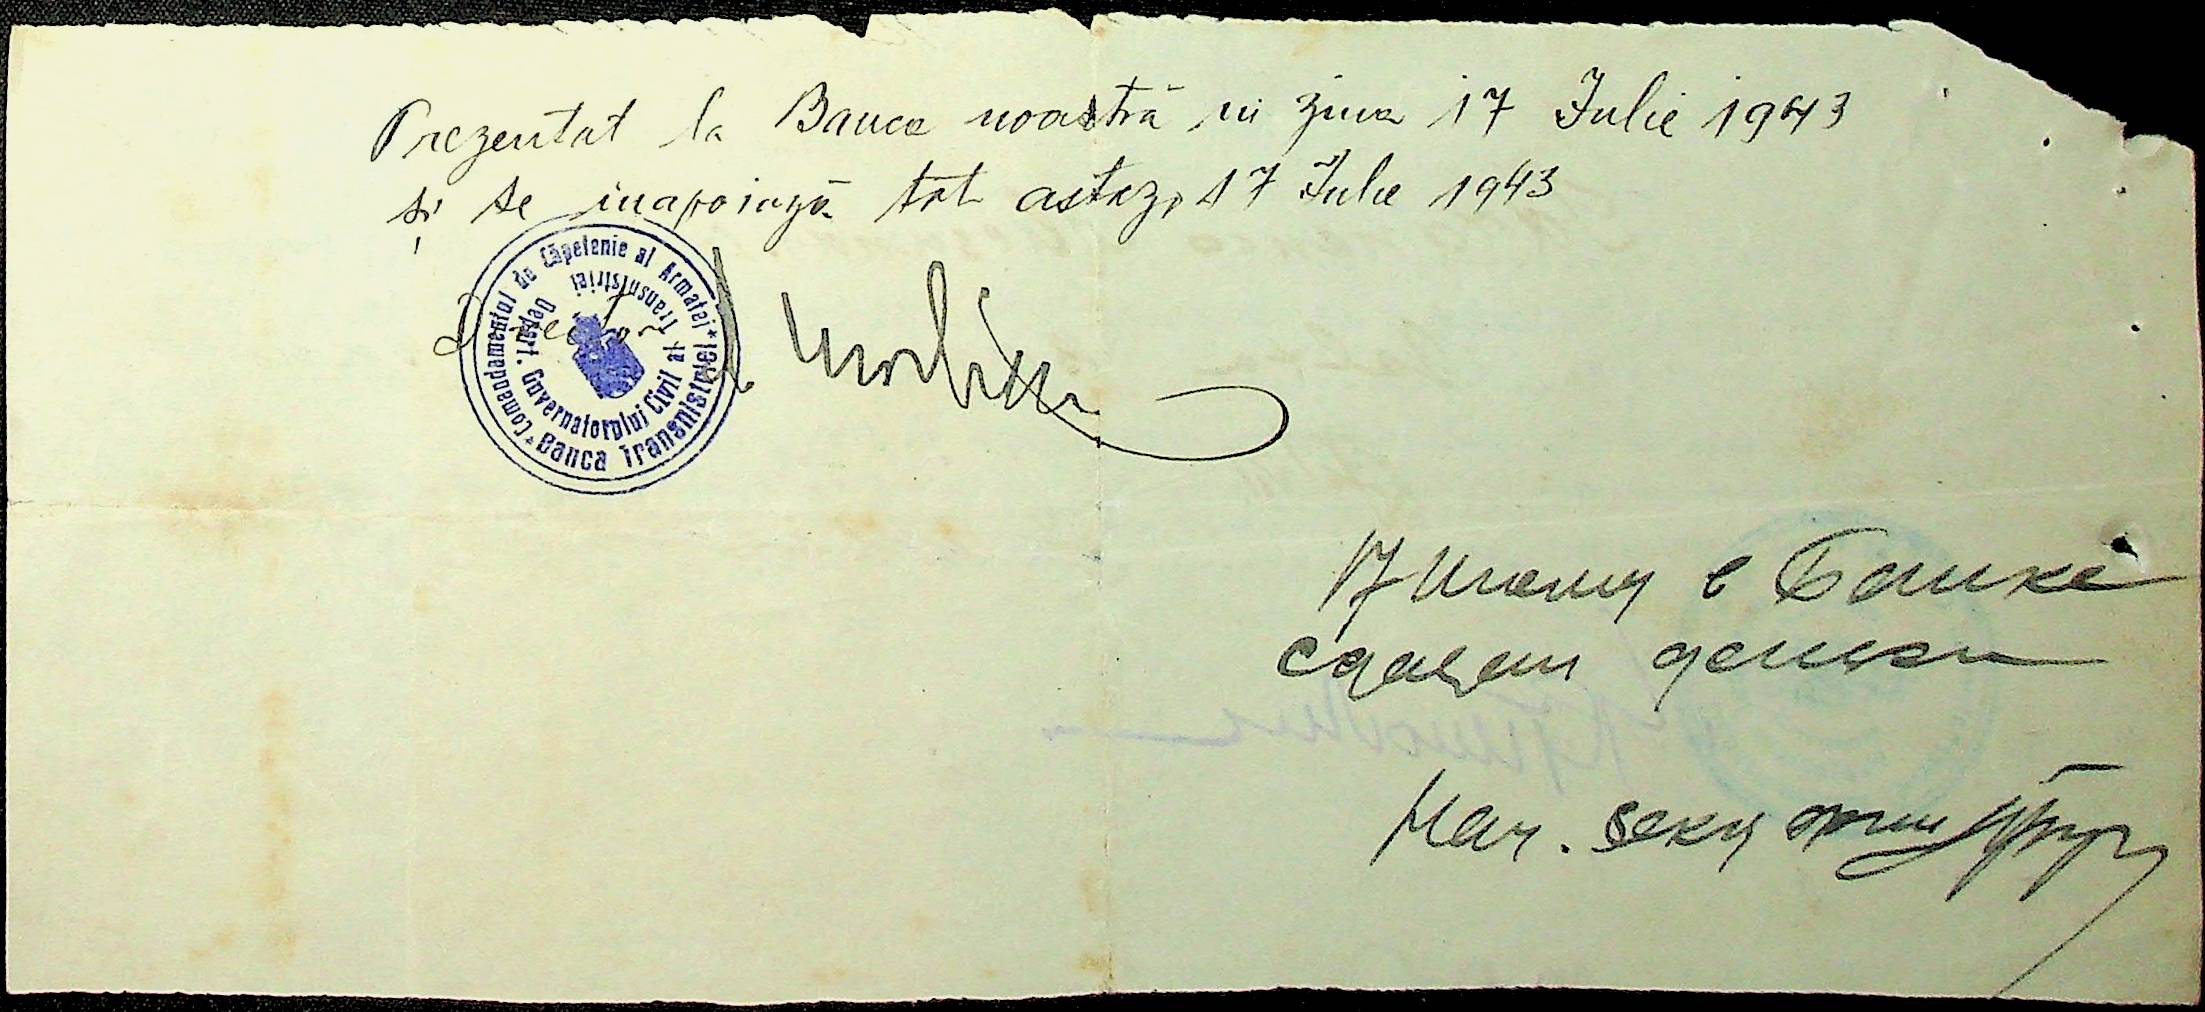 Prezentat la Banca noastră in ziua 17 Iulie 1943
și se inapoiază tot astazi 17 Iulie 1943
Director
Comandamentul de Căpetenie al Armatei
* Banca Transnistriei *
Depart. Guvernatorului Civil al Transnistriei
17 Июля в Банке
сдавал деньги
Нач.